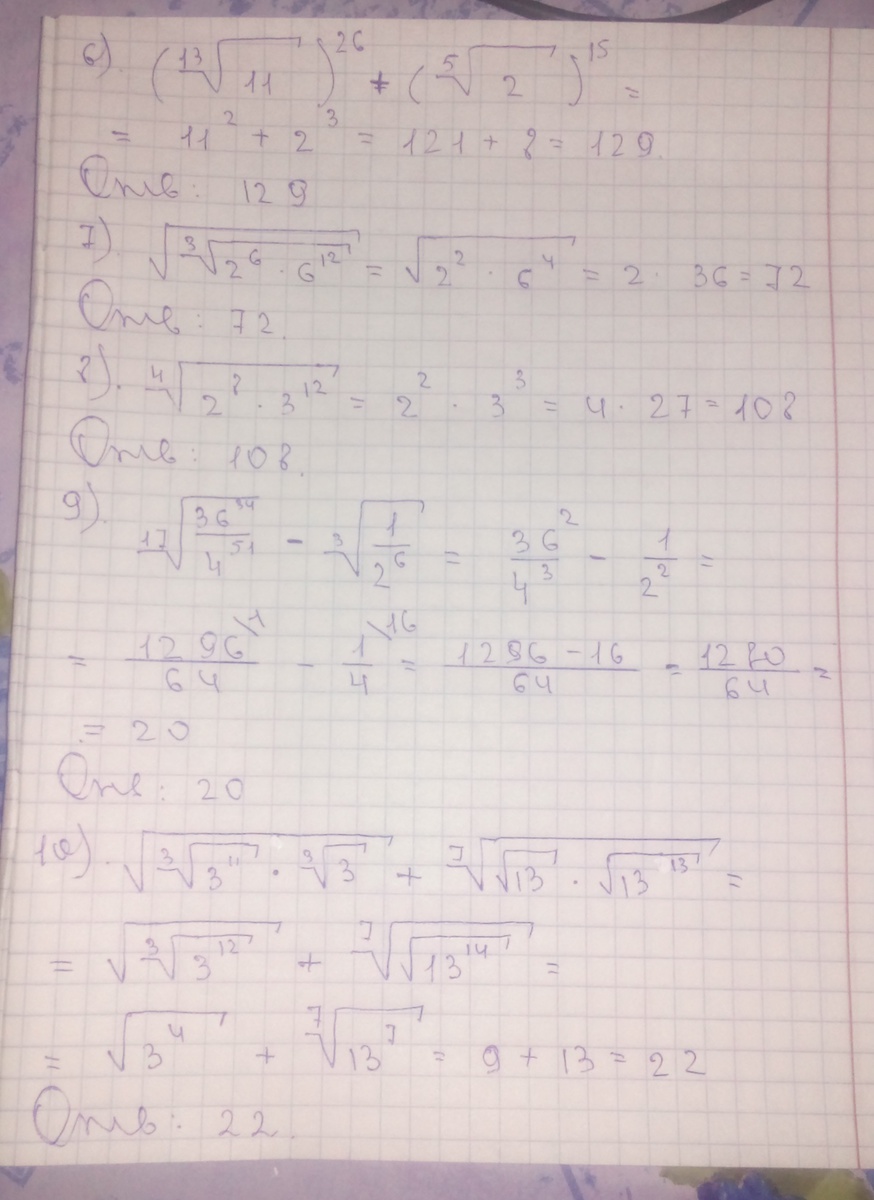 6). (¹³√11)²⁶ + (⁵√2)¹⁵ =
= 11² + 2³ = 121 + 8 = 129.
Отв: 129
7). √(³√(2⁶ · 6¹²)) = √(2² · 6⁴) = 2 · 36 = 72
Отв: 72.
8). ⁴√(2⁸ · 3¹²) = 2² · 3³ = 4 · 27 = 108
Отв: 108.
9). ¹⁷√(36³⁴/4⁵¹) - ³√(1/2⁶) = 36²/4³ - 1/2² =
= 1296\1/64 - 1\16/4 = (1296 - 16)/64 = 1280/64 =
= 20
Отв: 20
10). √(³√(3¹¹) · ³√3) + ⁷√(√13 · √(13¹³)) =
= √(³√(3¹²)) + ⁷√(√(13¹⁴)) =
= √(3⁴) + ⁷√(13⁷) = 9 + 13 = 22
Отв: 22.